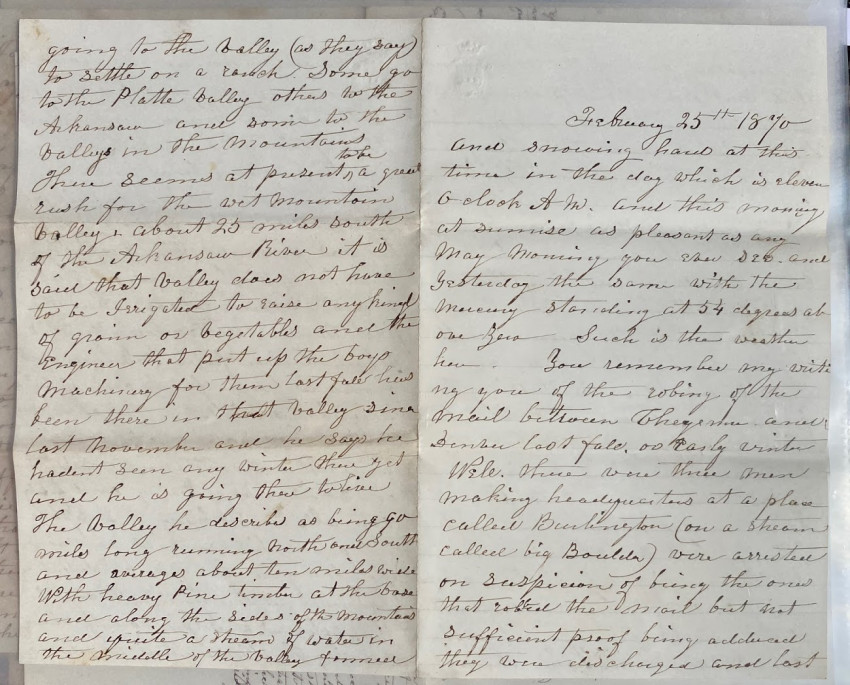 going to the valley (as they say)
to settle on a ranch. Some go
to the Platte valley others to the
Arkansaw and some to the
Valleys in the Mountains
There seems at present to be a great
rush for the wet Mountain
Valley. about 25 miles south
of the Arkansaw River it is
said that valley does not have
to be Irrigated to raise any kind
of grain or vegetables and the
Engineer that put up the boys
Machinery for them last fale has
been there in that valley since
last November and he says he
hadent seen any winter there yet
and he is going there to live
The Valley he describes as being 60
miles long running North and South
and averages about ten miles wide
With heavy Pine timber at the base
and along the sides of the Mountains
and quite a stream of water in
the middle of the valley formed
February 25th 1870
and snowing hard at this
time in the day which is eleven
O clock A M. and this morning
at sunrise as pleasant as any
May Morning you ever see. and
Yesterday the same with the
Mercury standing at 54 degrees ab
ove Zero Such is the weather
here. You remember my writi
ng you of the robing of the
Mail between Cheyenne and
Denver last fale, or Early winter
Wele. there were three men
making headquarters at a place
called Burlington (on a stream
called big Boulder) were arrested
on suspicion of being the ones
that robed the mail but not
sufficient proof being adduced
they were discharged and last